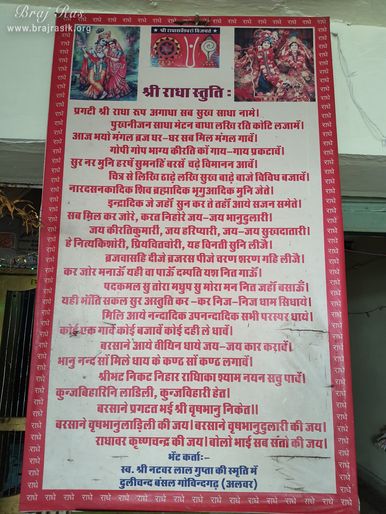 Braj Ras
www.brajrasik.org
राधे राधे राधे राधे राधे राधे राधे राधे राधे राधे
श्री राधासर्वेश्वरो विजयते
श्री राधा स्तुति :
प्रगटी श्री राधा रूप अगाधा सब सुख साधा नामे।
पुरवनीजन साधा मेटन बाधा लखि रति कोटि लजामें।
आज भयो मंगल ब्रज घर-घर सब मिल मंगल गावें।
गोपी गोप भाग्य कीरति कों गाय-गाय प्रकटावें।
सुर नर मुनि हरषें सुमनहिं बरसें चढ़े विमानन आवें।
चित्र से लिखि ठाढ़े लखि सुख बाढ़े बाजे विविध बजावें।
नारदसनकादिक शिव ब्रह्मादिक भृगुआदिक मुनि जेते।
इन्द्रादिक जे जहाँ सुन कर ते तहाँ आये सजन समेते।
सब मिल कर जोरे, करत निहोरे जय-जय भानुदुलारी।
जय कीरतिकुमारी, जय हरिप्यारी, जय-जय सुखदातारी।
हे नित्यकिशोरी, प्रियचितचोरी, यह विनती सुनि लीजै।
ब्रजवासहि दीजे ब्रजरस पीजे चरण शरण गहि लीजै।
कर जोर मनाऊँ यही वा पाऊँ दम्पति यश नित गाऊँ।
पदकमल सु तोरा मधुप सु मोरा मन नित जहाँ बसाऊँ।
यही भाँति सकल सुर अस्तुति कर -कर निज-निज धाम सिधाये।
मिलि आये नन्दादिक उपनन्दादिक सभी परस्पर धाये।
कोई एक गावें कोई बजावें कोई दही ले धावें।
बरसाने आये वीथिन धाये जय-जय कार करावें।
भानु नन्द सों मिले धाय के कण्ठ सों कण्ठ लगावें।
श्रीभट निकट निहार राधिका श्याम नयन सचु पावें।
कुन्जबिहारिनि लाडिली, कुन्जविहारी हेत।
बरसाने प्रगटत भई श्री वृषभानु निकेत।।
बरसाने वृषभानुलाड़िली की जय। बरसाने वृषभानुदुलारी की जय।
राधावर कृष्णचन्द्र की जय। बोलो भाई सब संतो की जय।
भेंट कर्ताः-
स्व. श्री नटवर लाल गुप्ता की स्मृति में
दुलीचन्द बंसल गोविन्दगढ़ (अलवर)
राधे राधे राधे राधे राधे राधे राधे राधे राधे राधे